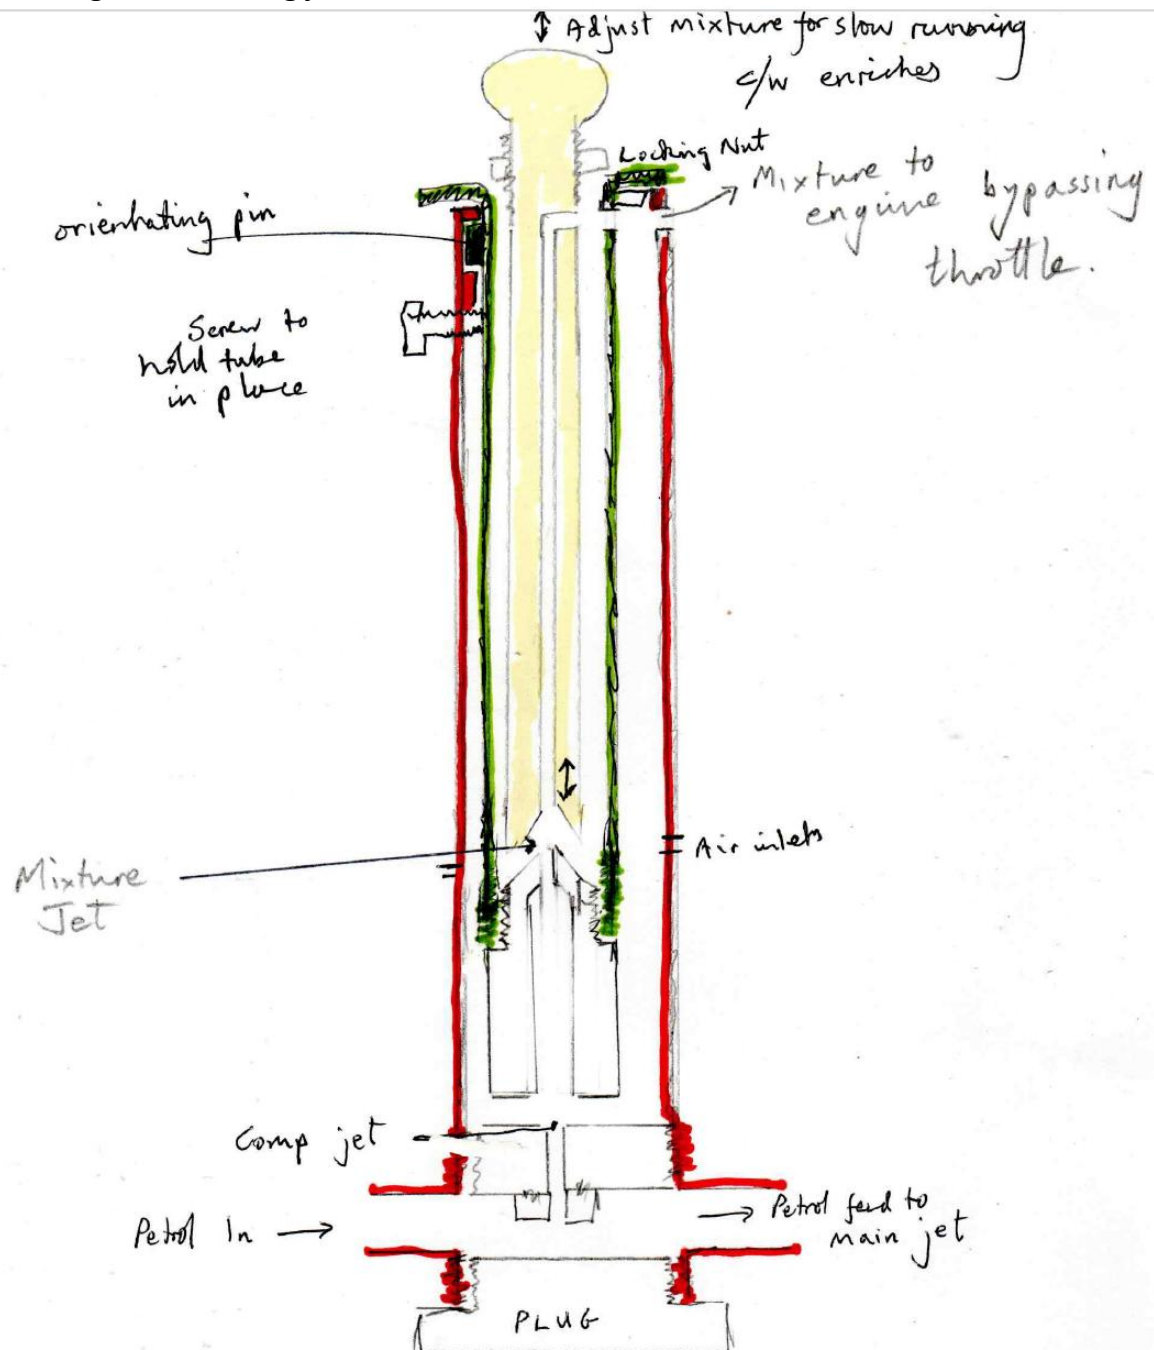 Adjust mixture for slow running
c/w enriches
Locking Nut
Mixture to
engine bypassing
throttle.
orientating pin
Screw to
hold tube
in place
Air inlets
Mixture
Jet
Comp jet
Petrol In
Petrol feed to
main jet
PLUG